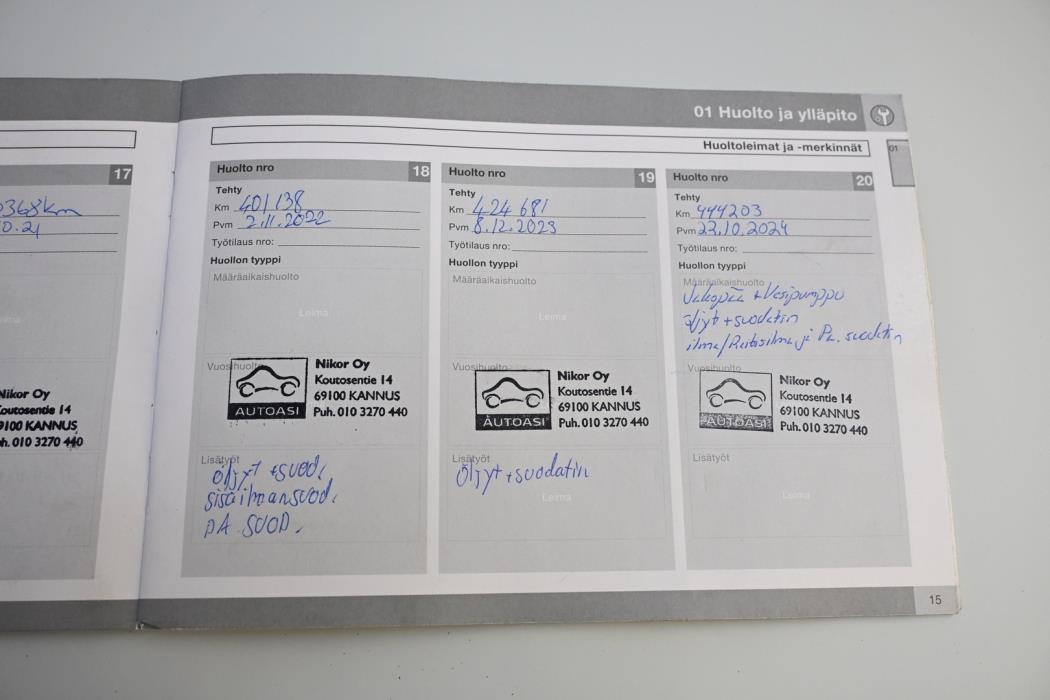 01 Huolto ja ylläpito
Huoltoleimat ja -merkinnät
01
17
368km
0.21
Leima
Nikor Oy
Koutosentie 14
69100 KANNUS
Puh. 010 3270 440
Huolto nro 18
Tehty
Km 401 138
Pvm 2.11.2022
Työtilaus nro:
Huollon tyyppi
Määräaikaishuolto
Leima
Vuosihuolto
AUTOASI
Nikor Oy
Koutosentie 14
69100 KANNUS
Puh. 010 3270 440
Lisätyöt
Öljyt + suod.
sisäilmansuod.
PA SUOD.
Huolto nro 19
Tehty
Km 424 681
Pvm 8.12.2023
Työtilaus nro:
Huollon tyyppi
Määräaikaishuolto
Leima
Vuosihuolto
AUTOASI
Nikor Oy
Koutosentie 14
69100 KANNUS
Puh. 010 3270 440
Lisätyöt
Öljyt + suodatin
Leima
Huolto nro 20
Tehty
Km 444203
Pvm 23.10.2024
Työtilaus nro:
Huollon tyyppi
Määräaikaishuolto
Jakopää + Vesipumppu
öljyt + suodatin
ilma/Raitisilma ja Pa. suodatin
Vuosihuolto
AUTOASI
Nikor Oy
Koutosentie 14
69100 KANNUS
Puh. 010 3270 440
Lisätyöt
Leima
15